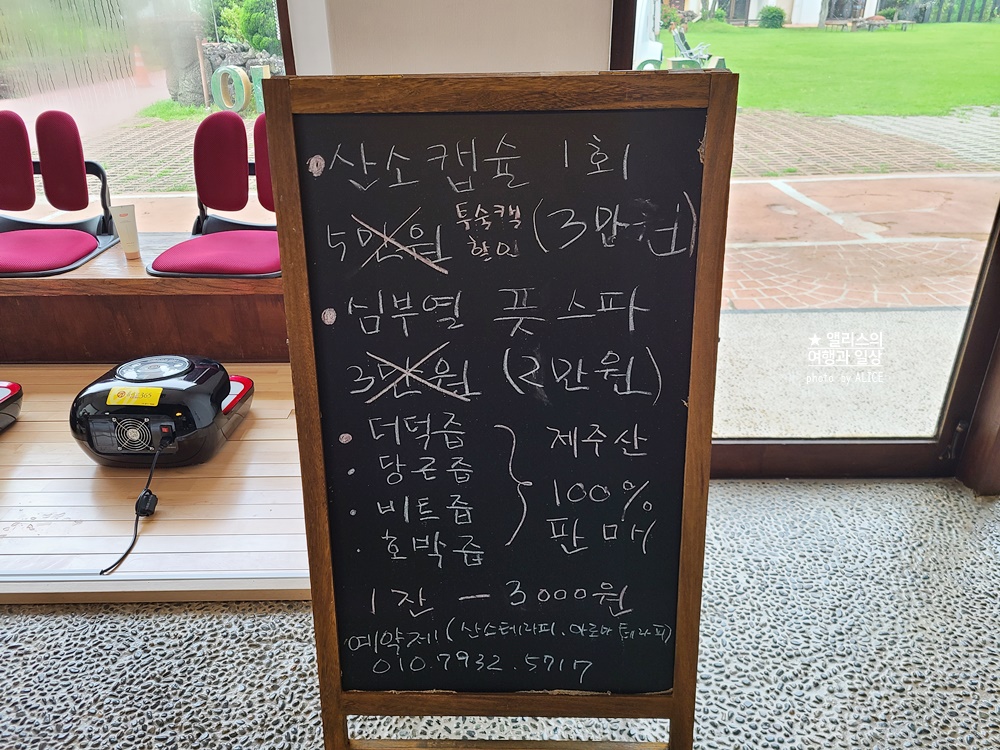 산소캡슐 1회
5만원 투숙객 할인 (3만원)
심부열 풋스파
3만원 (2만원)
더덕즙
당근즙
비트즙
호박즙
제주산
100%
판매
1잔 - 3000원
예약제(산소테라피.아로마테라피)
010.7932.5717
★ 앨리스의
여행과 일상
photo by ALICE